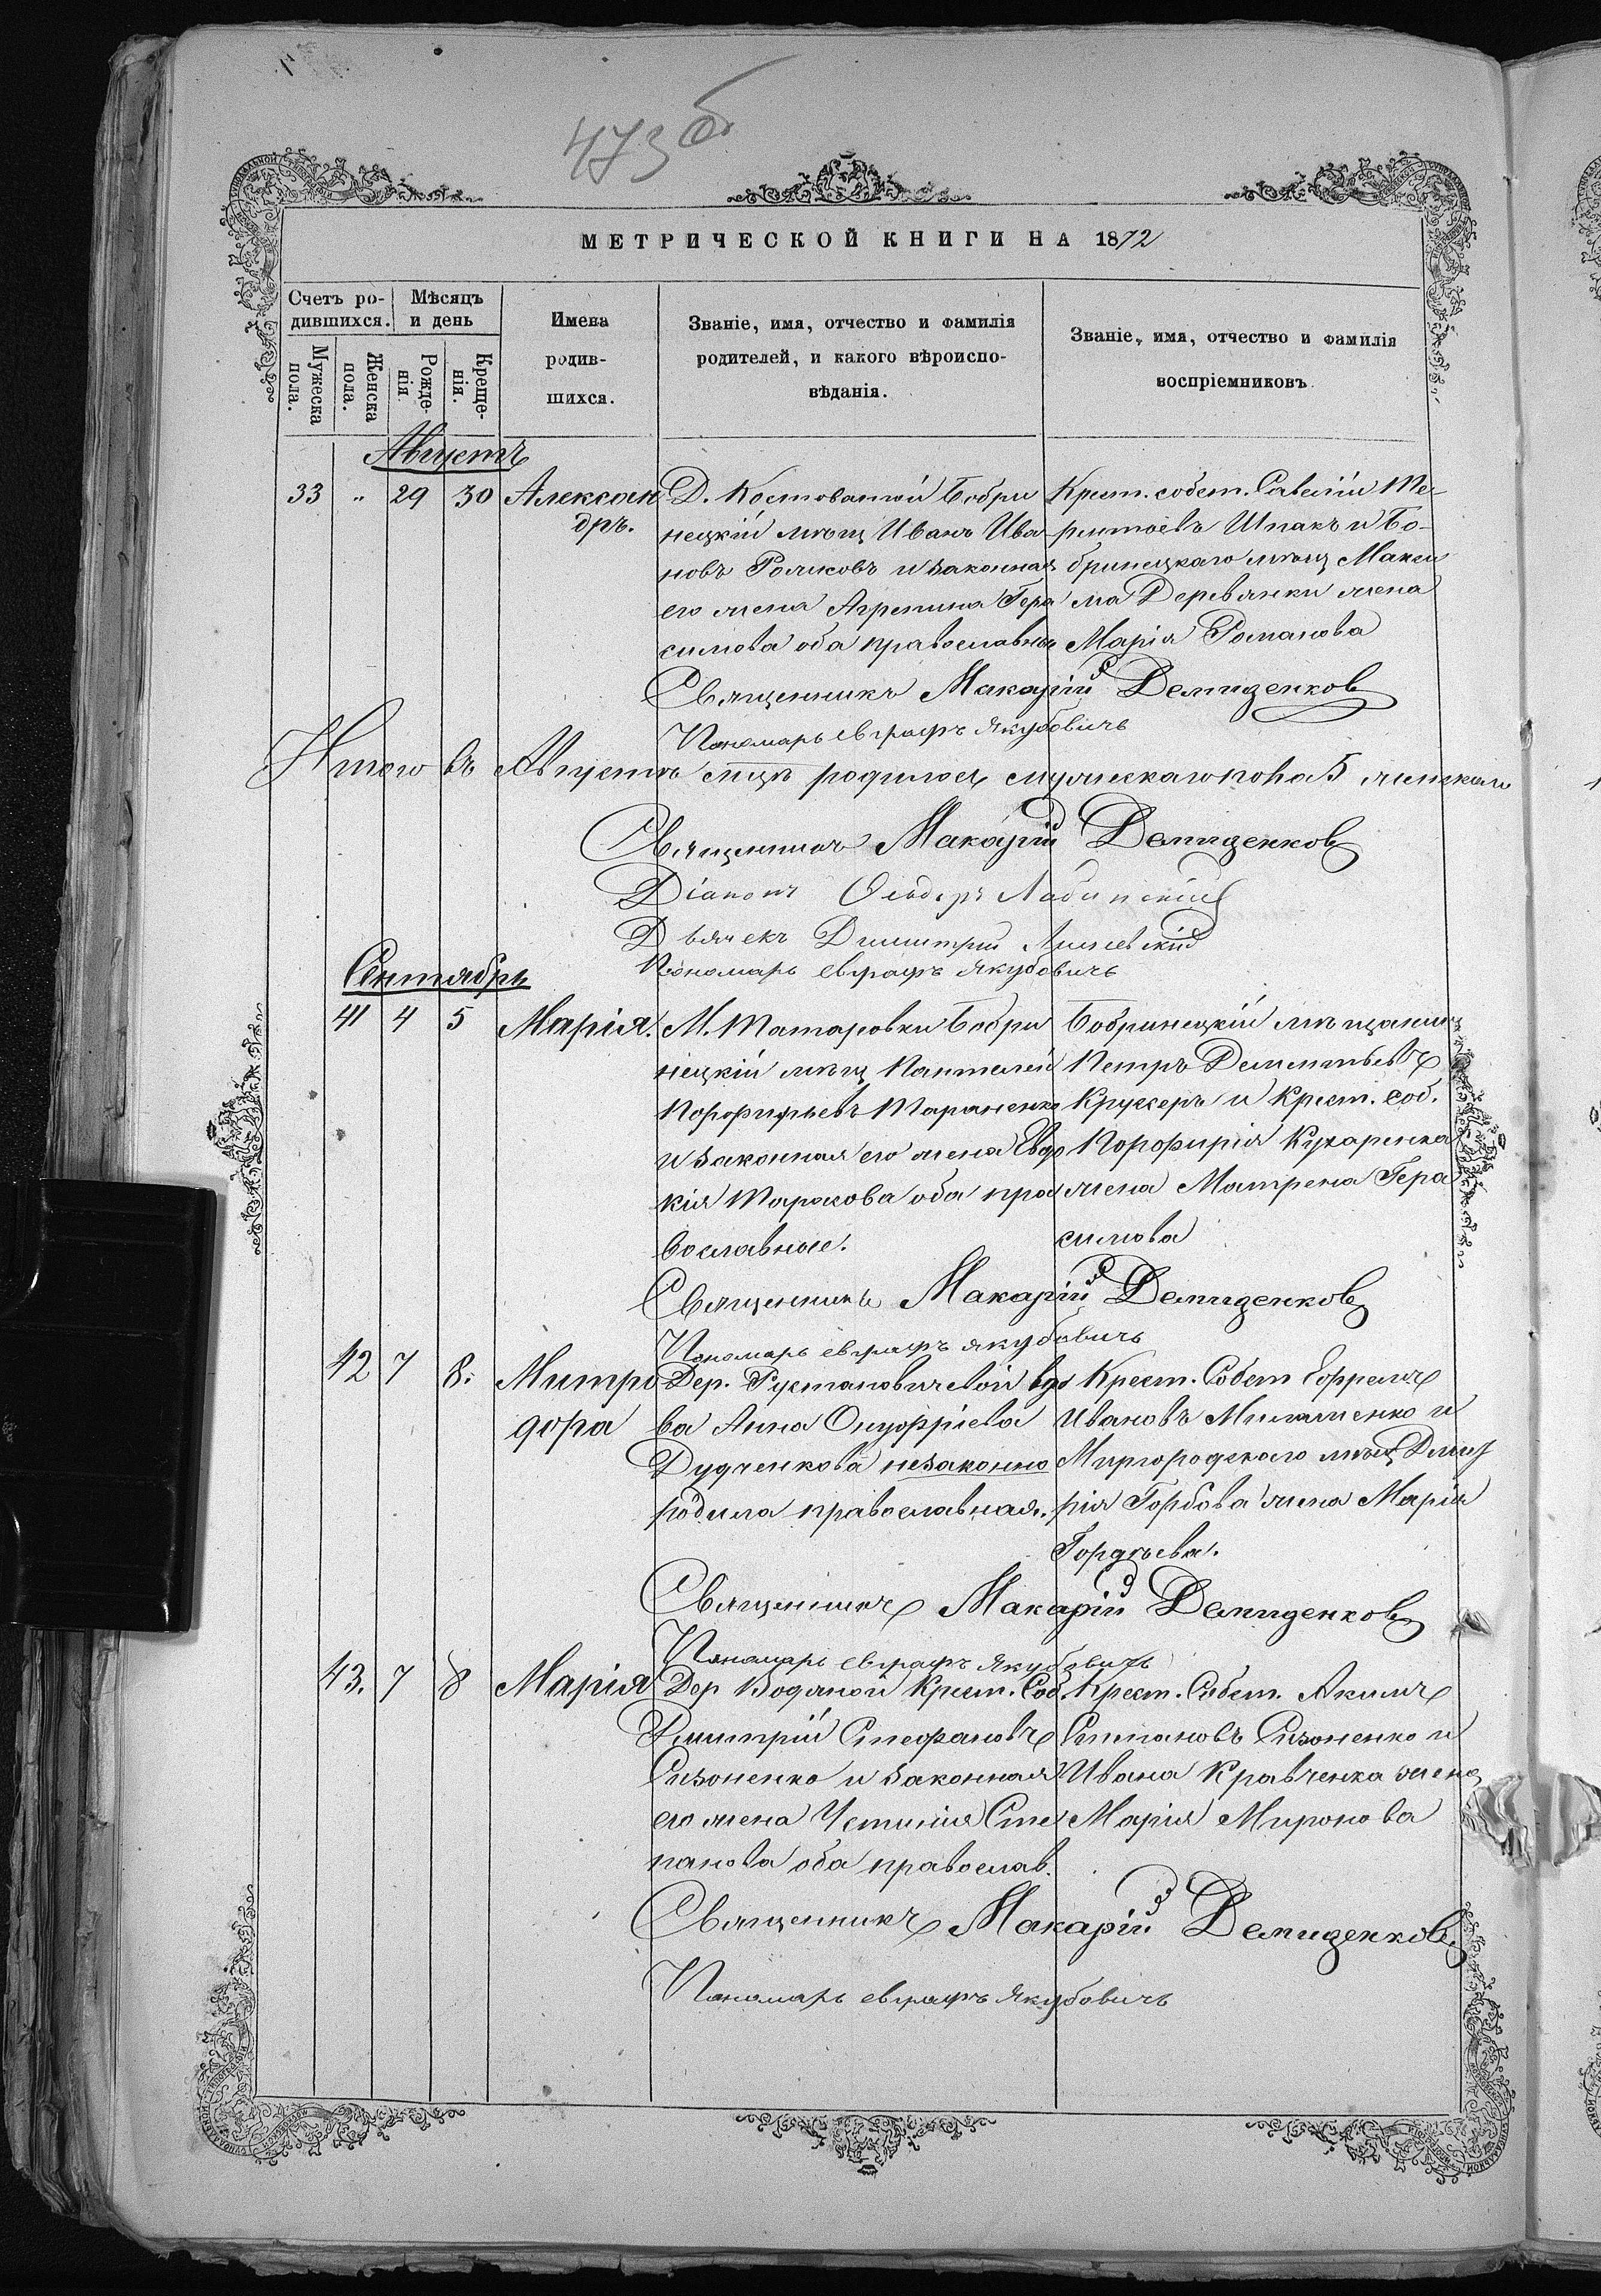 473 об
МЕТРИЧЕСКОЙ КНИГИ НА 1872
Счетъ ро-
дившихся.
Мѣсяцъ
и день
Мужеска
пола.
Женска
пола.
Рожде-
нія.
Креще-
нія.
Имена
родив-
шихся.
Званіе, имя, отчество и фамилія
родителей, и какого вѣроиспо-
вѣданія.
Званіе, имя, отчество и фамилія
воспріемниковъ
Августъ
33 " 29 30 Алексан
дръ.
Д. Костоватой Бобри
нецкій мѣщ Иванъ Ива
новъ и законная
его жена Агрепина Гера
симова оба православные
Крест. собст. Савелій Те-
рентьевъ Шпакъ и Бо-
бринецкаго мѣщ Макси
ма Деревянки жена
Марія Романова
Священникъ Макарій Демиденковъ
Пономарь Евграфъ Якубовичъ
Итого въ Августѣ мцѣ родилось мужескаго пола 5 женскаго
Священникъ Макарій Демиденковъ
Діаконъ Лабинскій
Дьячекъ Димитрій
Пономарь Евграфъ Якубовичъ
Сентябрь
41 4 5 Марія.
М. Татаровки Бобри
нецкій мѣщ Пантелей
Порфирьевъ Тараненко
и законная его жена Евдо
кія Тарасова оба пра
вославные.
Бобринецкій мѣщанинъ
Петръ Дементьевъ
и Крест. соб.
Порфирія Кухаренка
жена Матрена Гера
симова
Священникъ Макарій Демиденковъ
Пономарь Евграфъ Якубовичъ
42 7 8. Митро
дора
Дер. Рустановичевой вдо
ва Анна Онуфріева
Дудченкова незаконно
родила православная.
Крест. Собст Ефремъ
Ивановъ и
Миргородскаго мѣщ Дмит
рія Горбова жена Марія
Гордѣева.
Священникъ Макарій Демиденковъ
Пономарь Евграфъ Якубовичъ
43. 7 8 Марія
Дер Водяной Крест. Соб.
Димитрій Стефановъ
Сизоненко и законная
его жена Устинія Сте
панова оба православ.
Крест. Собст. Акимъ
Степановъ Сизоненко и
Ивана Кравченка жена
Марія Миронова
Священникъ Макарій Демиденковъ
Пономарь Евграфъ Якубовичъ